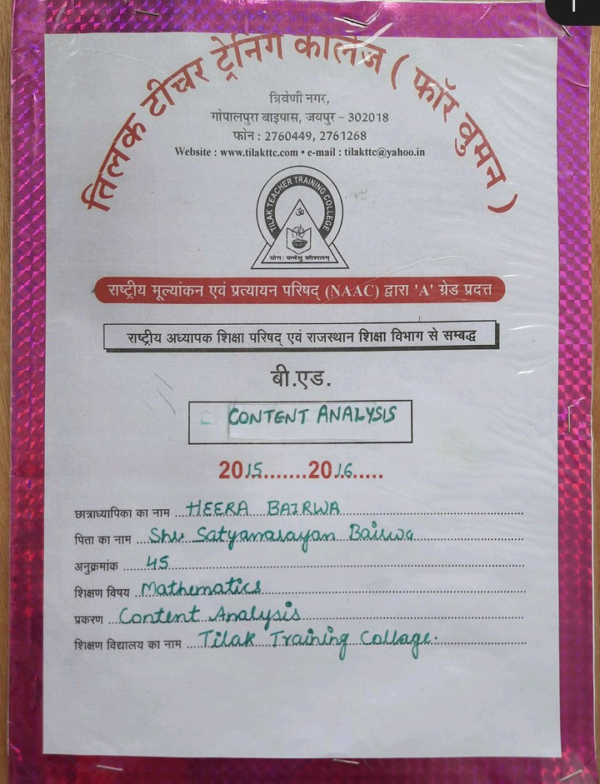 तिलक टीचर ट्रेनिंग कॉलेज ( फॉर वुमन )
त्रिवेणी नगर,
गोपालपुरा बाइपास, जयपुर - 302018
फोन : 2760449, 2761268
Website : www.tilakttc.com • e-mail : tilakttc@yahoo.in
TILAK TEACHER TRAINING COLLEGE
ॐ
योगः कर्मसु कौशलम्
राष्ट्रीय मूल्यांकन एवं प्रत्यायन परिषद् (NAAC) द्वारा 'A' ग्रेड प्रदत्त
राष्ट्रीय अध्यापक शिक्षा परिषद् एवं राजस्थान शिक्षा विभाग से सम्बद्ध
बी.एड.
CONTENT ANALYSIS
2015.......2016.....
छात्राध्यापिका का नाम ...HEERA BAIRWA
पिता का नाम ...Shri Satyanarayan Bairwa
अनुक्रमांक ....45
शिक्षण विषय ..Mathematics
प्रकरण ..Content Analysis
शिक्षण विद्यालय का नाम ....Tilak Training Collage.